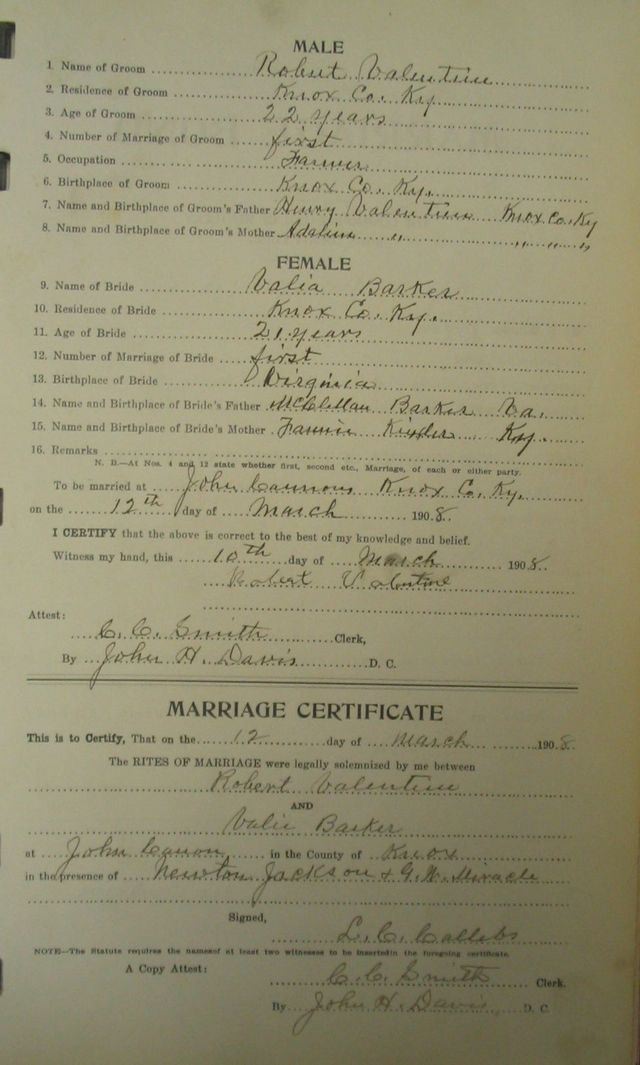 MALE
1. Name of Groom Robert Valentine
2. Residence of Groom Knox Co. Ky
3. Age of Groom 22 years
4. Number of Marriage of Groom first
5. Occupation Farmer
6. Birthplace of Groom Knox Co. Ky.
7. Name and Birthplace of Groom's Father Henry Valentine Knox Co. Ky
8. Name and Birthplace of Groom's Mother Adaline " " " "
FEMALE
9. Name of Bride Valia Barker
10. Residence of Bride Knox Co. Ky.
11. Age of Bride 21 years
12. Number of Marriage of Bride first
13. Birthplace of Bride Virginia
14. Name and Birthplace of Bride's Father McClellan Barker Va.
15. Name and Birthplace of Bride's Mother Fannie Kinder Ky.
16. Remarks
N. B.—At Nos. 4 and 12 state whether first, second etc., Marriage, of each or either party.
To be married at John Cannons Knox Co. Ky.
on the 12th day of March 1908.
I CERTIFY that the above is correct to the best of my knowledge and belief.
Witness my hand, this 10th day of March 1908.
Robert Valentine
Attest:
C. C. Smith Clerk,
By John H. Davis D. C.
MARRIAGE CERTIFICATE
This is to Certify, That on the 12 day of March 1908
The RITES OF MARRIAGE were legally solemnized by me between
Robert Valentine
AND
Valie Barker
at John Canon in the County of Knox
in the presence of Newton Jackson & G. W. Miracle
Signed,
L. C. Callebs
NOTE—The Statute requires the names of at least two witnesses to be inserted in the foregoing certificate.
A Copy Attest:
C. C. Smith Clerk.
By John H. Davis D. C.